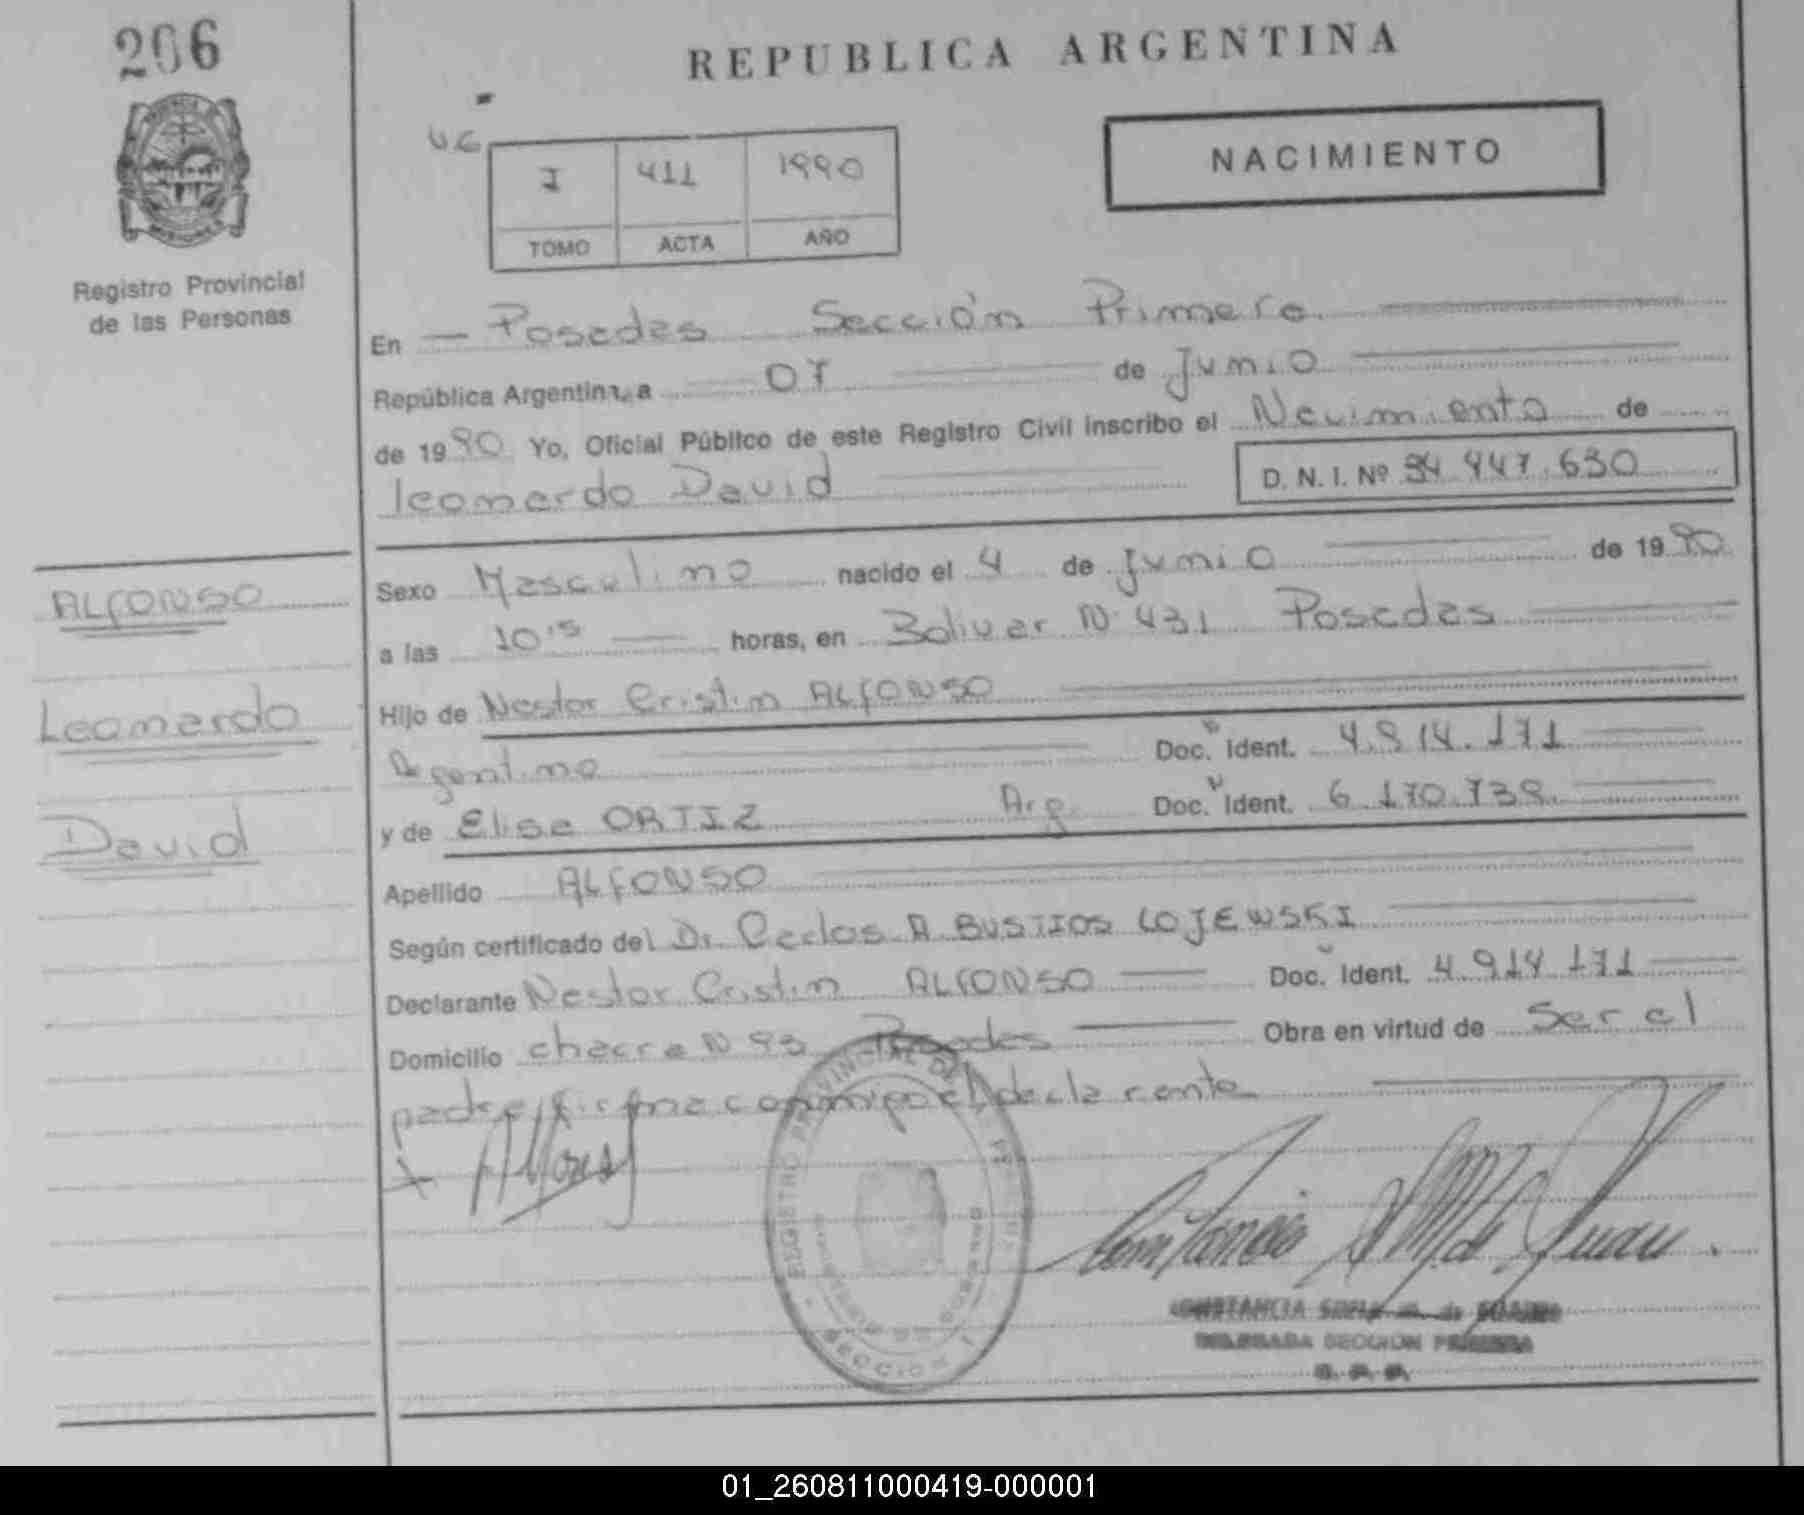 206
REPUBLICA ARGENTINA
NACIMIENTO
I 411 1990
TOMO ACTA AÑO
Registro Provincial
de las Personas
En Posadas Sección Primera
República Argentina, a 07 de Junio
de 1990 Yo, Oficial Público de este Registro Civil inscribo el Nacimiento de
Leonardo David D. N. I. Nº 34.947.630
Sexo Masculino nacido el 4 de Junio de 1990
a las 10:15 horas, en Bolivar N 431 Posadas
Hijo de Nestor Cristin ALFONSO
Argentino Doc. Ident. 4.914.171
y de Elisa ORTIZ Arg. Doc. Ident. 6.170.738
Apellido ALFONSO
Según certificado del Dr Carlos A BUSTIOS LOJEWSKI
Declarante Nestor Cristin ALFONSO Doc. Ident. 4.914.171
Domicilio chacra N 93 Posadas Obra en virtud de Ser el
padre, firma conmigo el declarante
ALFONSO
Leonardo
David
REGISTRO PROVINCIAL DE LAS PERSONAS
MINISTERIO DE GOBIERNO
SECCION 1
CONSTANCIA de
DELEGADA SECCION PRIMERA
01_260811000419-000001